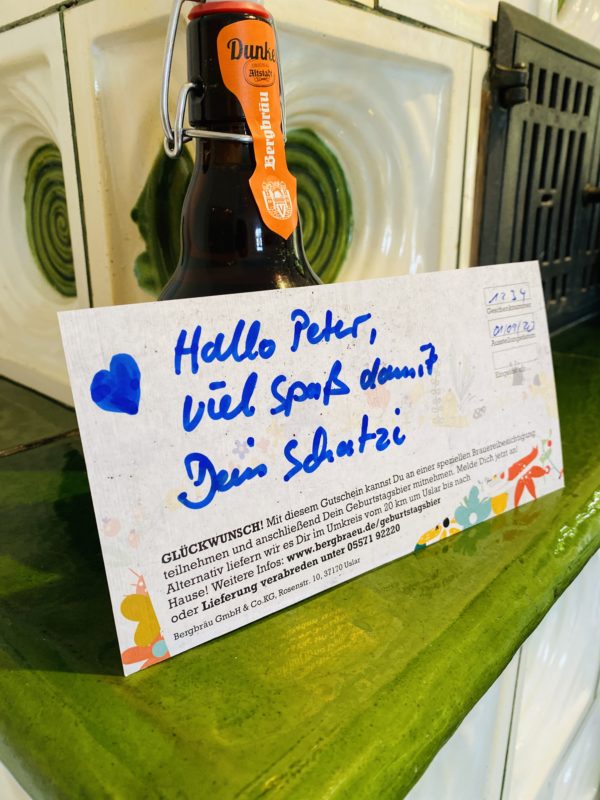 Dunke
Altstadt
Bergbräu
1234
Geschenknummer
01/09/20
Ausstellungsdatum
Hallo Peter,
viel Spaß damit
Dein Schatzi
GLÜCKWUNSCH! Mit diesem Gutschein kannst Du an einer speziellen Brauereibesichtigung
teilnehmen und anschließend Dein Geburtstagsbier mitnehmen. Melde Dich jetzt an!
Alternativ liefern wir es Dir im Umkreis vom 20 km um Uslar bis nach
Hause! Weitere Infos: www.bergbraeu.de/geburtstagsbier
oder Lieferung verabreden unter 05571 92220
Bergbräu GmbH & Co.KG, Rosenstr. 10, 37170 Uslar